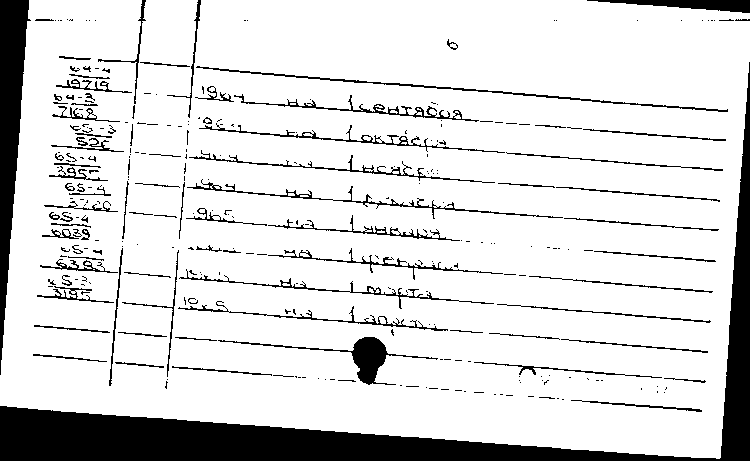 6
64-4
19719 1964 на 1 сентября
64-3
7168 1964 на 1 октября
65-3
526 1964 на 1 ноября
65-4
3955 1964 на 1 декабря
65-4
3720 1965 на 1 января
65-4
6039 на 1 февраля
65-4
6383 1965 на 1 марта
65-3
3195 1965 на 1 апреля